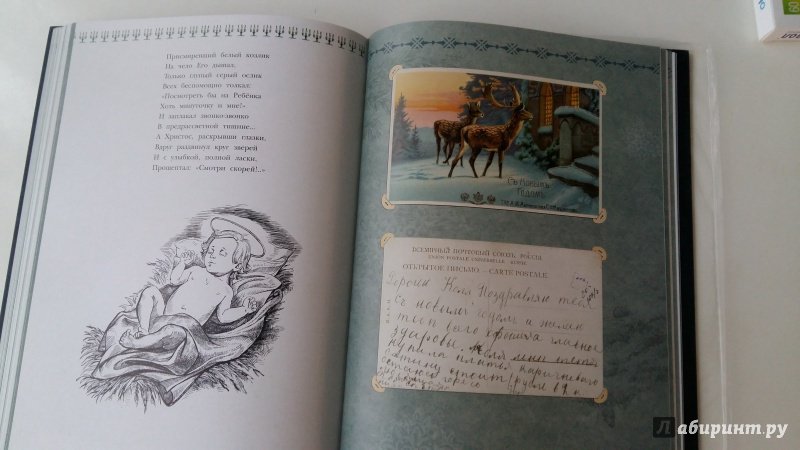 Присмиревший белый козлик
На чело Его дышал;
Только глупый серый ослик
Всех беспомощно толкал:
«Посмотреть бы на Ребёнка
Хоть минуточку и мне!»
И заплакал звонко-звонко
В предрассветной тишине...
А Христос, раскрывши глазки,
Вдруг раздвинул круг зверей
И с улыбкой, полной ласки,
Прошептал: «Смотри скорей!..»
Съ Новымъ
Годомъ
ВСЕМІРНЫЙ ПОЧТОВЫЙ СОЮЗЪ. РОССІЯ.
UNION POSTALE UNIVERSELLE. RUSSIE.
ОТКРЫТОЕ ПИСЬМО. — CARTE POSTALE.
Коля Поздравляю тебя
Съ новымъ годомъ и желаю
главное
здоровья.
купила платье коричневого
Лабиринт.ру